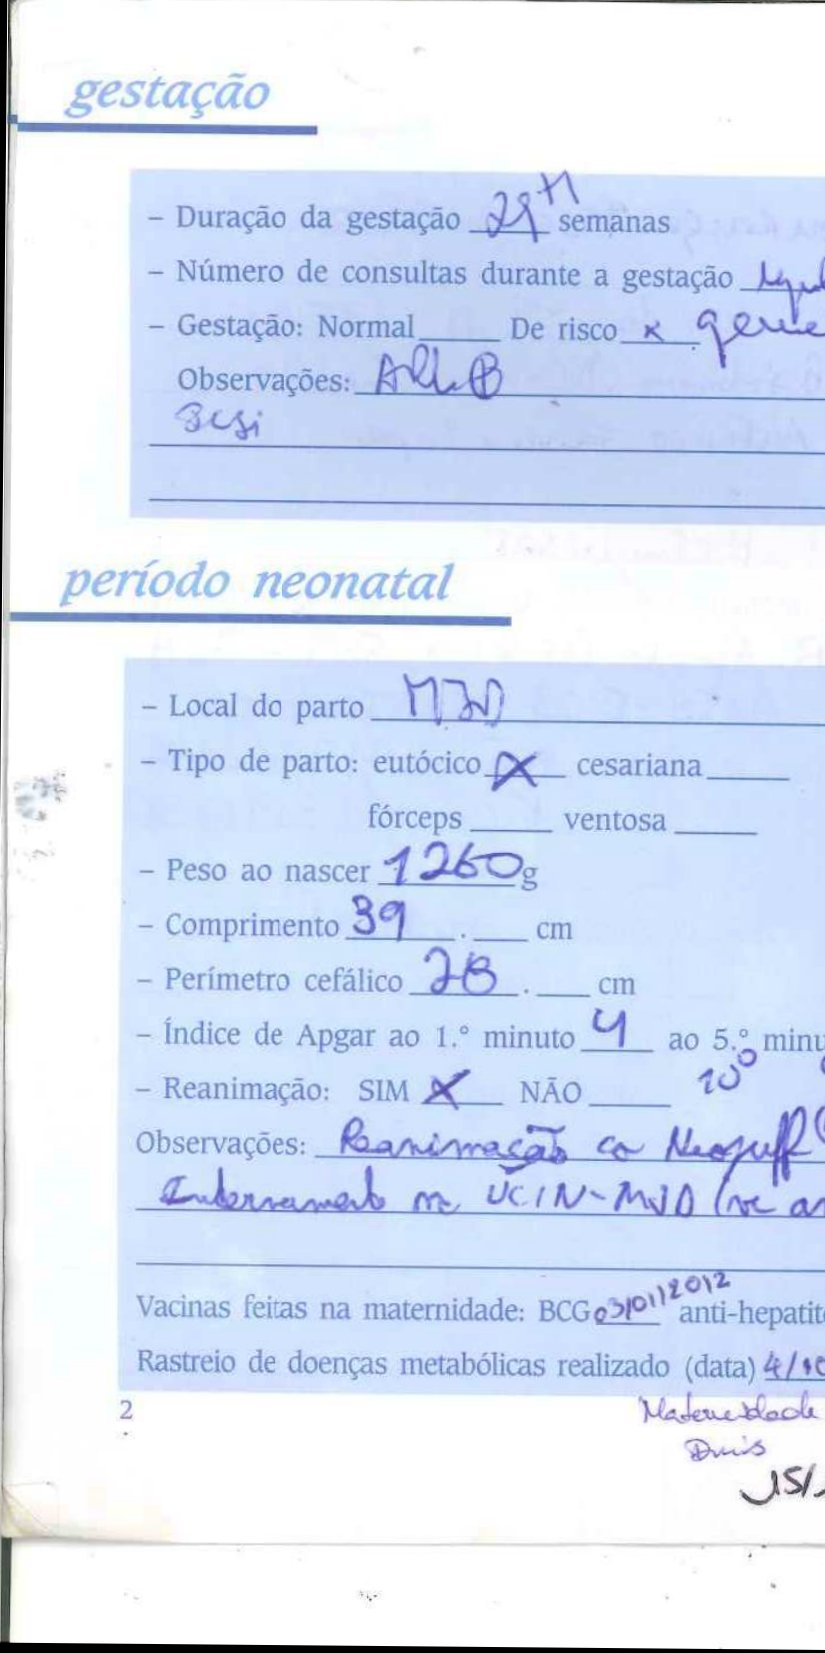 gestação
– Duração da gestação semanas
– Número de consultas durante a gestação
– Gestação: Normal De risco x geme
Observações:
período neonatal
– Local do parto MJD
– Tipo de parto: eutócico X cesariana
fórceps ventosa
– Peso ao nascer 1260 g
– Comprimento 39 . cm
– Perímetro cefálico 28 . cm
– Índice de Apgar ao 1.º minuto 4 ao 5.º minu
– Reanimação: SIM X NÃO 10º
Observações: Reanimação co Neopuff
Internamento na UCIN-MJD
Vacinas feitas na maternidade: BCG 03/01/2012 anti-hepatit
Rastreio de doenças metabólicas realizado (data) 4/10
2
Maternidade
Dinis
15/